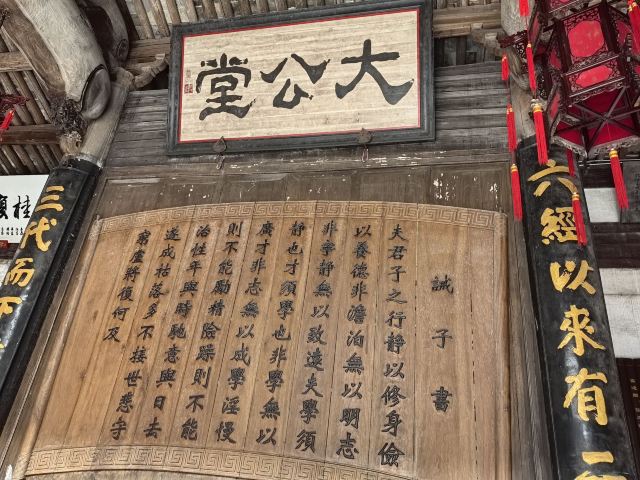 大公堂
六經以來有二
誡子書
夫君子之行靜以修身儉
以養德非澹泊無以明志
非寧靜無以致遠夫學須
靜也才須學也非學無以
廣才非志無以成學淫慢
則不能勵精險躁則不能
治性年與時馳意與日去
遂成枯落多不接世悲守
窮廬將復何及
三代而下
桂